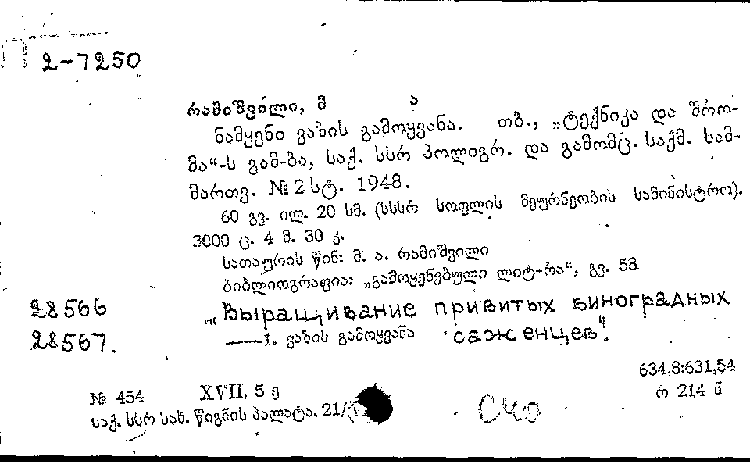 2-7250
რამიშვილი, მ ა
ნამყენი ვაზის გამოყვანა. თბ., „ტექნიკა და შრო-
მა“-ს გამ-ბა, საქ. სსრ პოლიგრ. და გამომც. საქმ. სამ-
მართვ. № 2 სტ. 1948.
60 გვ. ილ. 20 სმ. (სსსრ სოფლის მეურნეობის სამინისტრო).
3000 ც. 4 მ. 30 კ.
სათაურის წინ: მ. ა. რამიშვილი
ბიბლიოგრაფია: „გამოყენებული ლიტ-რა“, გვ. 58
28566 „Выращивание привитых виноградных
28567. —1. ვაზის გამოყვანა саженцев“.
634.8:631.54
№ 454 XVII, 5 ე რ 214 ნ
საქ. სსრ სახ. წიგნის პალატა. 21/